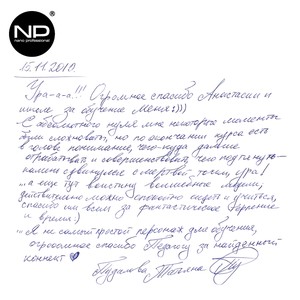 NP
nano professional
15.11.2019.
Ура-а-а!!! Огромное спасибо Анастасии и
школе за обучение меня:)))
С абсолютного нуля мне некоторые моменты
были сложноваты, но по окончании курса есть
в голове понимание, что-куда дальше
отрабатывать и совершенствовать, чего подтянуть-
камень сдвинулся с мертвой точки, ура!
...а еще тут воистину волшебные люди,
действительно можно спокойно сидеть и учиться,
спасибо им всем за фантастическое терпение
и время:)
...Я не самый простой персонаж для обучения,
огроооомное спасибо Педагогу за найденный
коннект
Татьяна